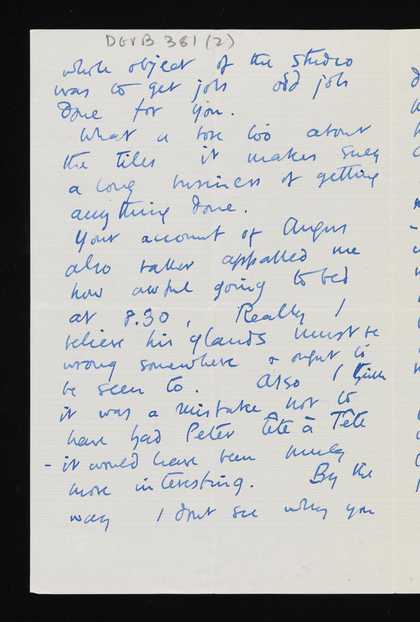 DGVB 381 (2)
whole object of the studio
was to get jobs odd jobs
done for you.
What a bore too about
the tiles it makes such
a long business of getting
anything done.
Your account of Angus
also rather appalled me
how awful going to bed
at 8.30, Really I
believe his glands must be
wrong somewhere & ought to
be seen to. Also I think
it was a mistake not to
have had Peter tête à Tête
- it would have been much
more interesting. By the
way I dont see why you